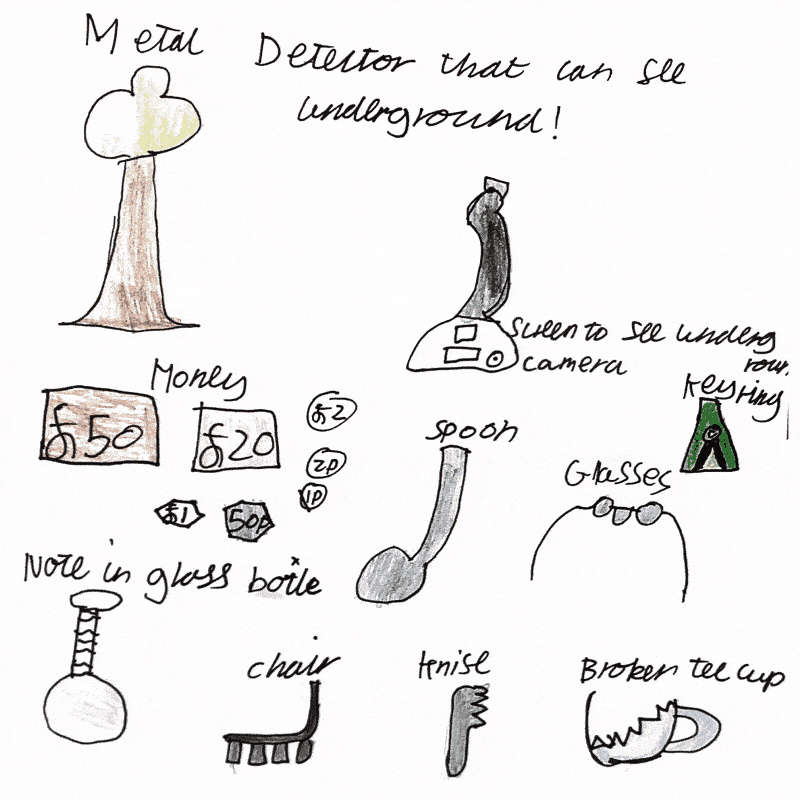 Metal Detector that can see
underground!
Screen to see underg
roun.
camera
Money
key
ring
£50
£20
£2
2p
1p
£1
50p
spoon
Glasses
Note in glass botle
chair
knise
Broken tee cup